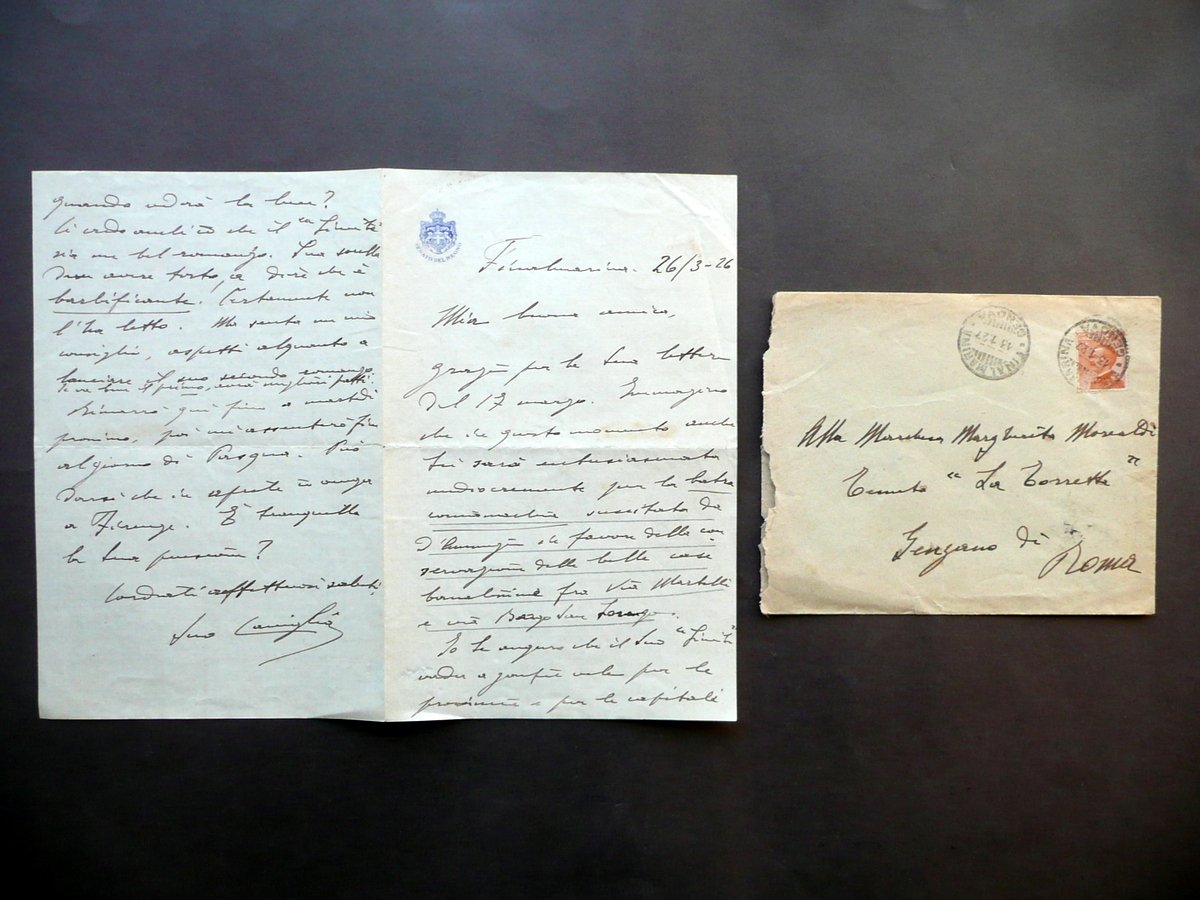 SENATO DEL REGNO
Finalmarina. 26/3-26
Mia buona amica,
grazie per la Sua lettera
del 17 marzo. Immagino
che in questo momento anche
Lei sarà entusiasmata
mediocremente per la
suscitata da
D'Annunzio in favore della con
servazione delle belle case
fra via Martelli
e via Borgo San Lorenzo.
Io Le auguro che il Suo "Limiti"
vada a gonfie vele per le
provincie e per le capitali
quando vedrà la luce?
che il "Limiti"
sia un bel romanzo. Sua sorella
deve avere torto, a dire che è
barbificante. Certamente non
l'ha letto. Ma senta un mio
consiglio, aspetti alquanto a
lanciare il suo secondo romanzo.
Se va bene il primo, avrà migliori patti.
Rimarrò qui fino a martedì
prossimo, poi mi assenterò fin
al giorno di Pasqua. Può
darsi che in aprile io venga
a Firenze. È tranquilla
la Sua pensione?
Cordiali affettuosi saluti,
Suo Caviglia
FINALMARINA
GENOVA
13.1.27
Alla Marchesa Margherita Movaldi
Tenuta "La Torretta"
Genzano di
Roma